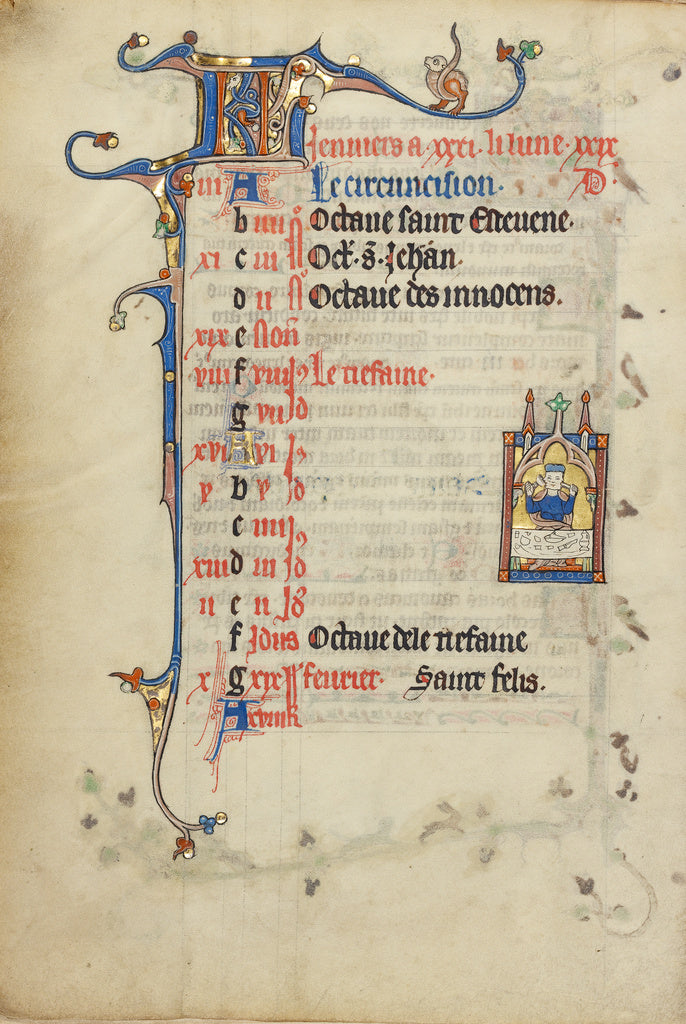 KL
Jenuiers a xxxi. li lune. xxx
iii A Le circuncision. D.
b iiii no Octaue saint Esteuene.
xi c iii no Oct. s. Jehan.
d ii no Octaue des innocens.
xix e Non
viii f viii id Le tiefaine.
g vii id
xvi A vi id
v b v id
c iiii id
xiii d iii id
ii e ii id
f Idus Octaue dele tiefaine
x g xix feurier. Saint felis.
A xviii k